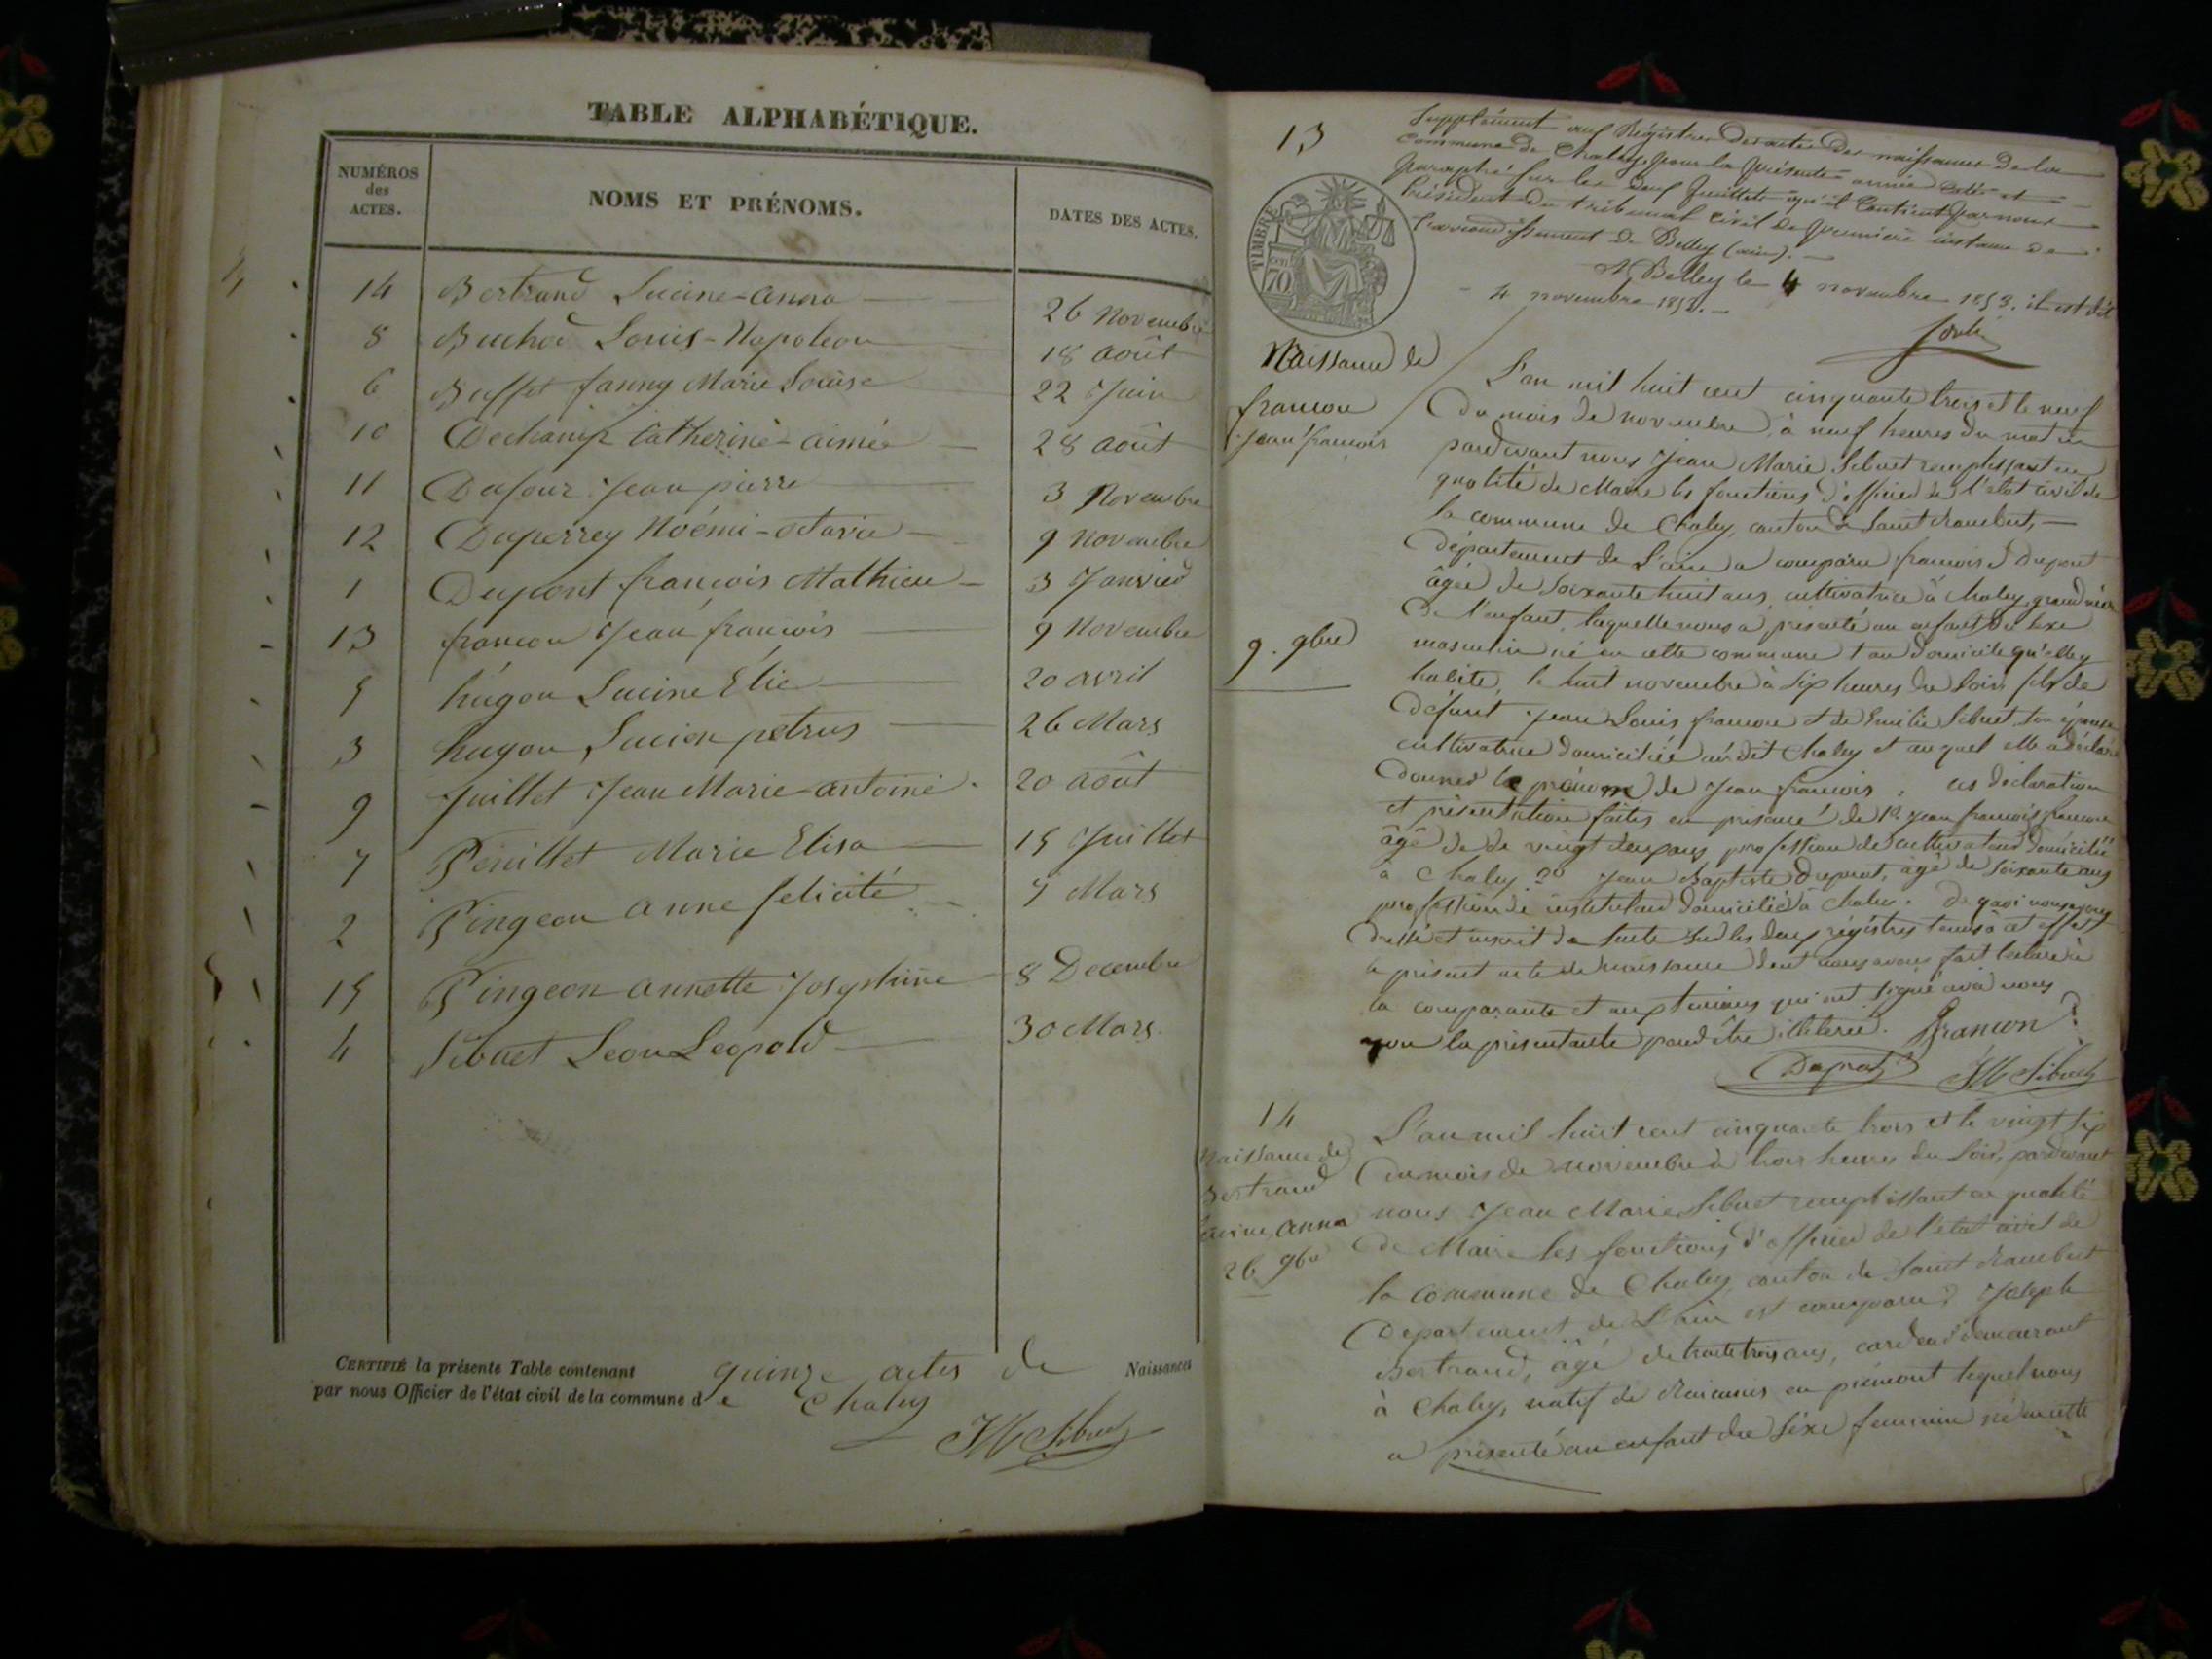 TABLE ALPHABÉTIQUE.
NUMÉROS des ACTES.
NOMS ET PRÉNOMS.
DATES DES ACTES.
14 Bertrand Lucine-anna 26 Novembre
8 Buchod Louis-Napoleon 18 août
6 Buffet fanny Marie Louise 22 Juin
10 Dechamp Catherine-aimée 28 août
11 Dufour Jean pierre 3 Novembre
12 Duperrey Noémi-octavie 9 Novembre
1 Dupont françois Mathieu 3 Janvier
13 françon Jean françois 9 Novembre
5 hugon Lucine Elie 20 avril
3 hugon Lucien petrus 26 Mars
9 Juillet Jean Marie-antoine 20 août
7 Pénillet Marie Elisa 15 Juillet
2 Pingeon anne felicité 7 Mars
15 Pingeon annette Josephine 8 Decembre
4 Sibuet Leon Leopold 30 Mars
CERTIFIÉ la présente Table contenant quinze actes de Naissances
par nous Officier de l'état civil de la commune de Chaley
JM Sibuet
13
Supplément aux Régistres des actes des naissances de la
commune de Chaley, pour la présente année coté et
paraphé sur les deux feuillets qu'il contient par nous
Président du tribunal civil de première instance de
l'arrondissement de Belley (ain).
TIMBRE
70
A Belley le 4 novembre 1853. il est dit
4 novembre 1853.
Naissance de
françon
jean françois
9. 9bre
L'an mil huit cent cinquante trois et le neuf
du mois de novembre, à neuf heures du matin
pardevant nous Jean Marie Sibuet remplissant en
qualité de Maire les fonctions d'officier de l'état civil de
la commune de Chaley, canton de Saint Rambert,
département de L'ain a comparu françoise dupont
âgée de soixante huit ans, cultivatrice à Chaley, grand mère
de l'enfant, laquelle nous a présenté un enfant du sexe
masculin né en cette commune au domicile qu'elle y
habite, le huit novembre à six heures du soir, fils de
défunt Jean Louis françon et de Emilie Sibuet, son épouse
cultivatrice domiciliée au dit Chaley et auquel elle a déclaré
donner le prénom de Jean françois, ces déclaration
et présentation faites en présence de 1° jean françois françon
âgé de de vingt deux ans profession de cultivateur domicilié
à Chaley 2° Jean Baptiste Duprat, âgé de soixante ans
profession de instituteur domicilié à Chaley. De quoi nous avons
dressé et inscrit de suite sur les deux régistres tenus à cet effet
le présent acte de naissance dont nous avons fait lecture à
la comparante et aux témoins qui ont signé avec nous
non la présentante pour être illéterée. françon
Duprat JM Sibuet
14
Naissance de
Bertrand
Lucine, anna
26 9bre
L'an mil huit cent cinquante trois et le vingt six
du mois de novembre à trois heures du soir, pardevant
nous Jean Marie Sibuet remplissant en qualité
de Maire les fonctions d'officier de l'état civil de
la commune de Chaley, canton de Saint Rambert
Département de L'ain est comparu Joseph
Bertrand, âgé de trente trois ans, cardeur demeurant
à Chaley, natif de en piémont lequel nous
a présenté un enfant du sexe feminin né en cette